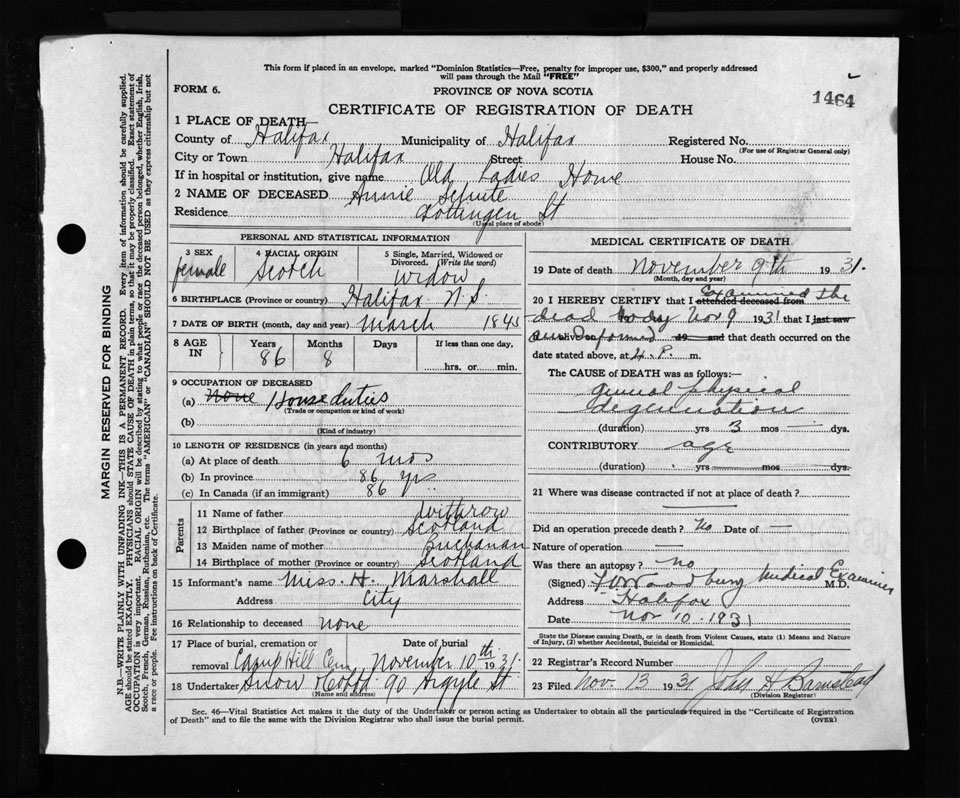 This form if placed in an envelope, marked "Dominion Statistics—Free, penalty for improper use, $300," and properly addressed
will pass through the Mail "FREE"
FORM 6.
PROVINCE OF NOVA SCOTIA
1464
CERTIFICATE OF REGISTRATION OF DEATH
1 PLACE OF DEATH
County of Halifax Municipality of Halifax Registered No.
(For use of Registrar General only)
City or Town Halifax Street House No.
If in hospital or institution, give name Old Ladies Home
2 NAME OF DECEASED Annie
Residence Gottingen St
(Usual place of abode)
PERSONAL AND STATISTICAL INFORMATION
3 SEX female
4 RACIAL ORIGIN Scotch
5 Single, Married, Widowed or Divorced. (Write the word) Widow
6 BIRTHPLACE (Province or country) Halifax N.S.
7 DATE OF BIRTH (month, day and year) March
8 AGE IN Years 86 Months 8 Days If less than one day, hrs. or min.
9 OCCUPATION OF DECEASED
(a) None House duties
(Trade or occupation or kind of work)
(b)
(Kind of industry)
10 LENGTH OF RESIDENCE (in years and months)
(a) At place of death 6 mos
(b) In province 86 yrs
(c) In Canada (if an immigrant) 86
Parents
11 Name of father Withrow
12 Birthplace of father (Province or country) Scotland
13 Maiden name of mother Buchanan
14 Birthplace of mother (Province or country) Scotland
15 Informant's name Miss. H. Marshall
Address City
16 Relationship to deceased none
17 Place of burial, cremation or removal Camp Hill Cem
Date of burial November 10th 1931.
18 Undertaker Snow & Co Ltd 90 Argyle St
(Name and address)
MEDICAL CERTIFICATE OF DEATH
19 Date of death November 9th 1931.
(Month, day and year)
20 I HEREBY CERTIFY that I attended deceased from examined the
dead body Nov 9 1931 that I last saw
am informed 19 and that death occurred on the
date stated above, at 4. P. m.
The CAUSE of DEATH was as follows:
General physical
degeneration
(duration) yrs 3 mos — dys.
CONTRIBUTORY age
(duration) yrs mos dys.
21 Where was disease contracted if not at place of death?
Did an operation precede death? No Date of —
Nature of operation —
Was there an autopsy? no
(Signed) Woodbury Medical Examiner M.D.
Address Halifax
Date Nov 10. 1931
State the Disease causing Death, or in death from Violent Causes, state (1) Means and Nature
of Injury, (2) whether Accidental, Suicidal or Homicidal.
22 Registrar's Record Number
23 Filed Nov. 13 1931 John A Barnstead
(Division Registrar)
Sec. 46—Vital Statistics Act makes it the duty of the Undertaker or person acting as Undertaker to obtain all the particulars required in the "Certificate of Registration
of Death" and to file the same with the Division Registrar who shall issue the burial permit.
(OVER)
MARGIN RESERVED FOR BINDING
N.B.—WRITE PLAINLY WITH UNFADING INK—THIS IS A PERMANENT RECORD. Every item of information should be carefully supplied.
AGE should be stated EXACTLY. PHYSICIANS should STATE CAUSE OF DEATH in plain terms, so that it may be properly classified. Exact statement of
OCCUPATION is very important. RACIAL ORIGIN will be described by stating to what people or race the deceased person belonged, whether English, Irish,
Scotch, French, German, Russian, Ruthenian, etc. The terms "AMERICAN" or "CANADIAN" SHOULD NOT BE USED as they express citizenship but not
a race or people. Fee instructions on back of Certificate.